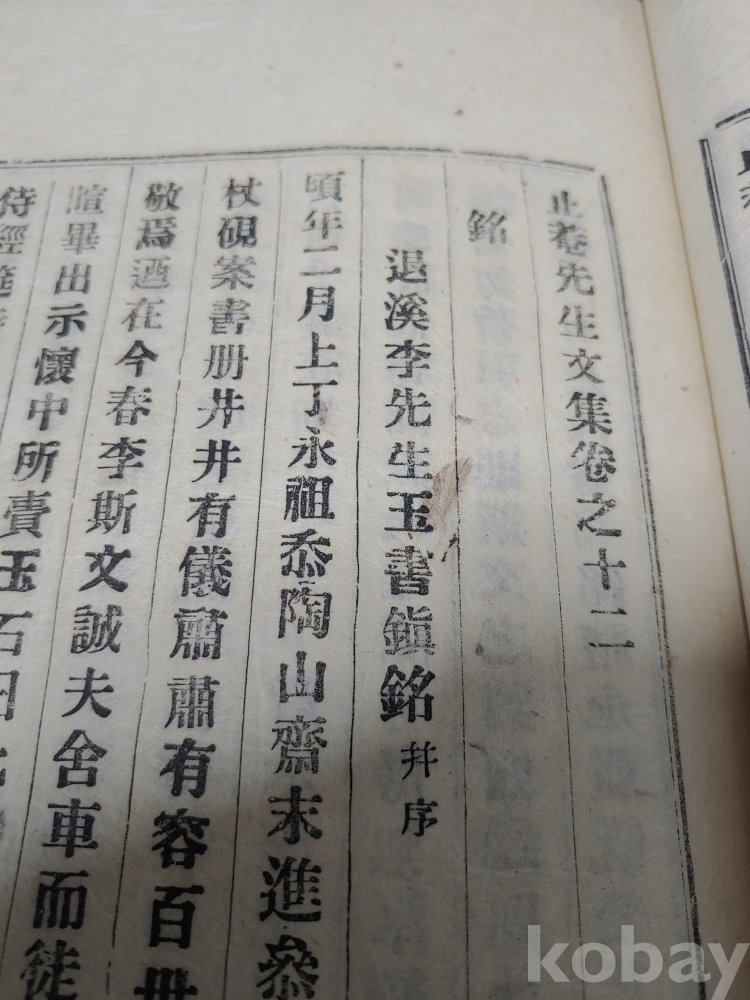 止菴先生文集卷之十二
銘
退溪李先生玉書鎭銘 幷序
頃年二月上丁永祖忝陶山齋末進叅
杖硯案書册井井有儀肅肅有容百世
敬焉迺在今春李斯文誠夫舍車而徒
暄畢出示懷中所賣玉石
侍經筵
kobay